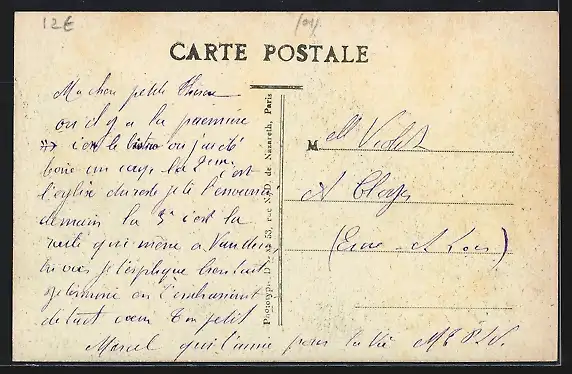 12€
CARTE POSTALE
Ma chère petite
où il y a la première
c'est le bistro où j'ai été
boire un coup la 2ème c'est
l'église du reste je te l'enverrai
demain la 3e c'est la
route qui mène a
tu vois je t'explique bien tout
je termine en t'embrassant
de tout cœur Ton petit
Marcel qui t'aime pour la vie
Phototypie D 53, rue N.-D. de Nazareth, Paris
M Elle Violet
A Cloyes
(Eure-et-Loir)